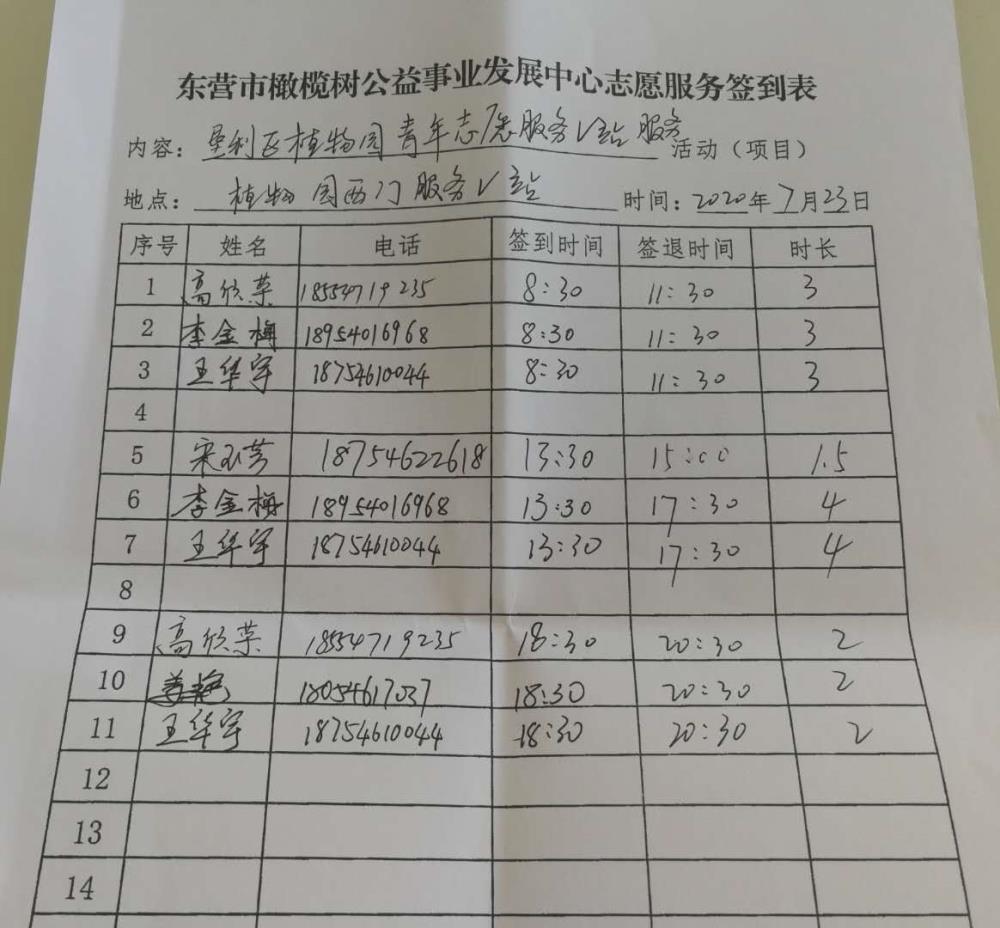 东营市橄榄树公益事业发展中心志愿服务签到表
内容：垦利区植物园青年志愿服务V站服务 活动（项目）
地点：植物园西门服务V站 时间：2020年7月23日
序号 姓名 电话 签到时间 签退时间 时长
1 高欣荣 18554719235 8:30 11:30 3
2 李金梅 18954016968 8:30 11:30 3
3 王华宇 18754610044 8:30 11:30 3
4
5 宋玉芳 18754622618 13:30 15:00 1.5
6 李金梅 18954016968 13:30 17:30 4
7 王华宇 18754610044 13:30 17:30 4
8
9 高欣荣 18554719235 18:30 20:30 2
10 18054617037 18:30 20:30 2
11 王华宇 18754610044 18:30 20:30 2
12
13
14